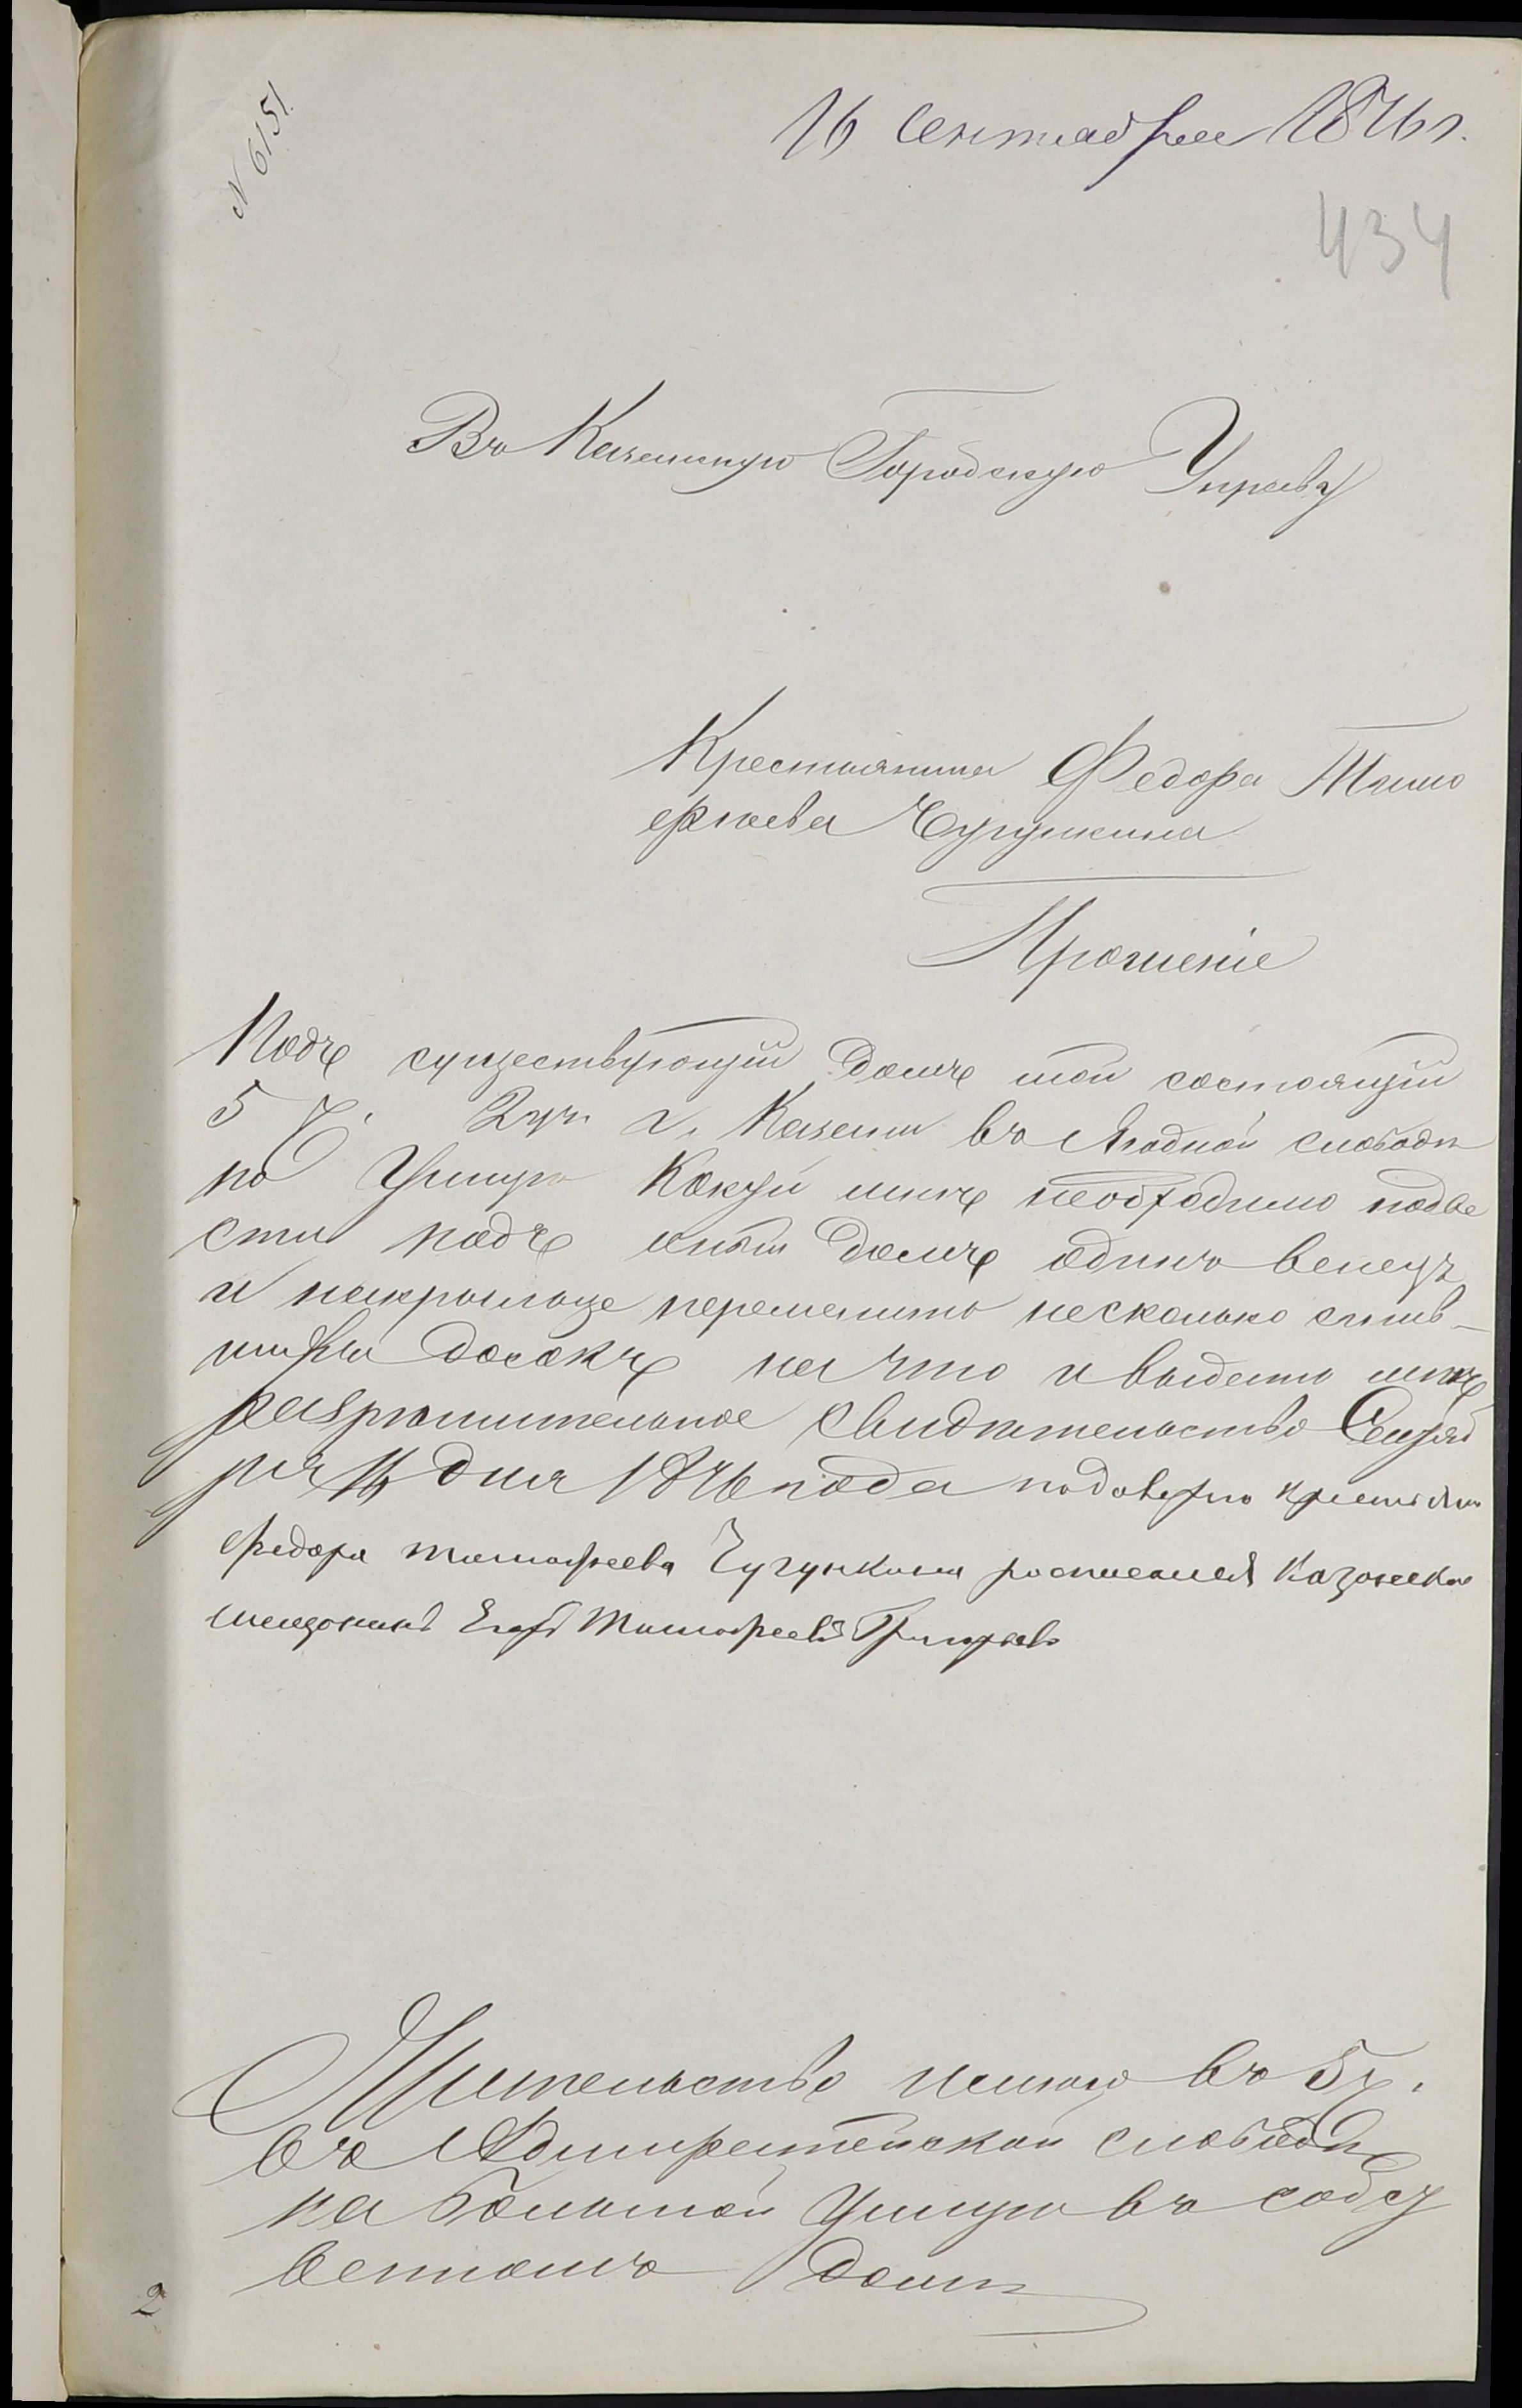 N 6151.
16 Сентября 1876 г.
434
Въ Казанскую Городскую Управу
Крестьянина Федора Тимо
феева Чугункина
Прошеніе
Подъ существующій домъ мой состоящій
5 ч. 2 уч. г. Казани въ Ягодной слободѣ
по Улицѣ Кокуй мнѣ необходимо подве
сти подъ оный домъ одинъ венецъ
и на крыльце переменить несколько сгнив-
шихъ досокъ на что и выдать мнѣ
разрѣшительное свидѣтельство Сентяб
ря 16 дня 1876 года по доверію крестьянина
Федора Тимофеева Чугункина росписался Казанской
мещанинъ Егоръ Тимофеевъ Григорьевъ
Жительство имѣю въ 5 ч.
въ Адмиралтейской слободѣ
на большой Улицѣ въ собст
венномъ домѣ
2